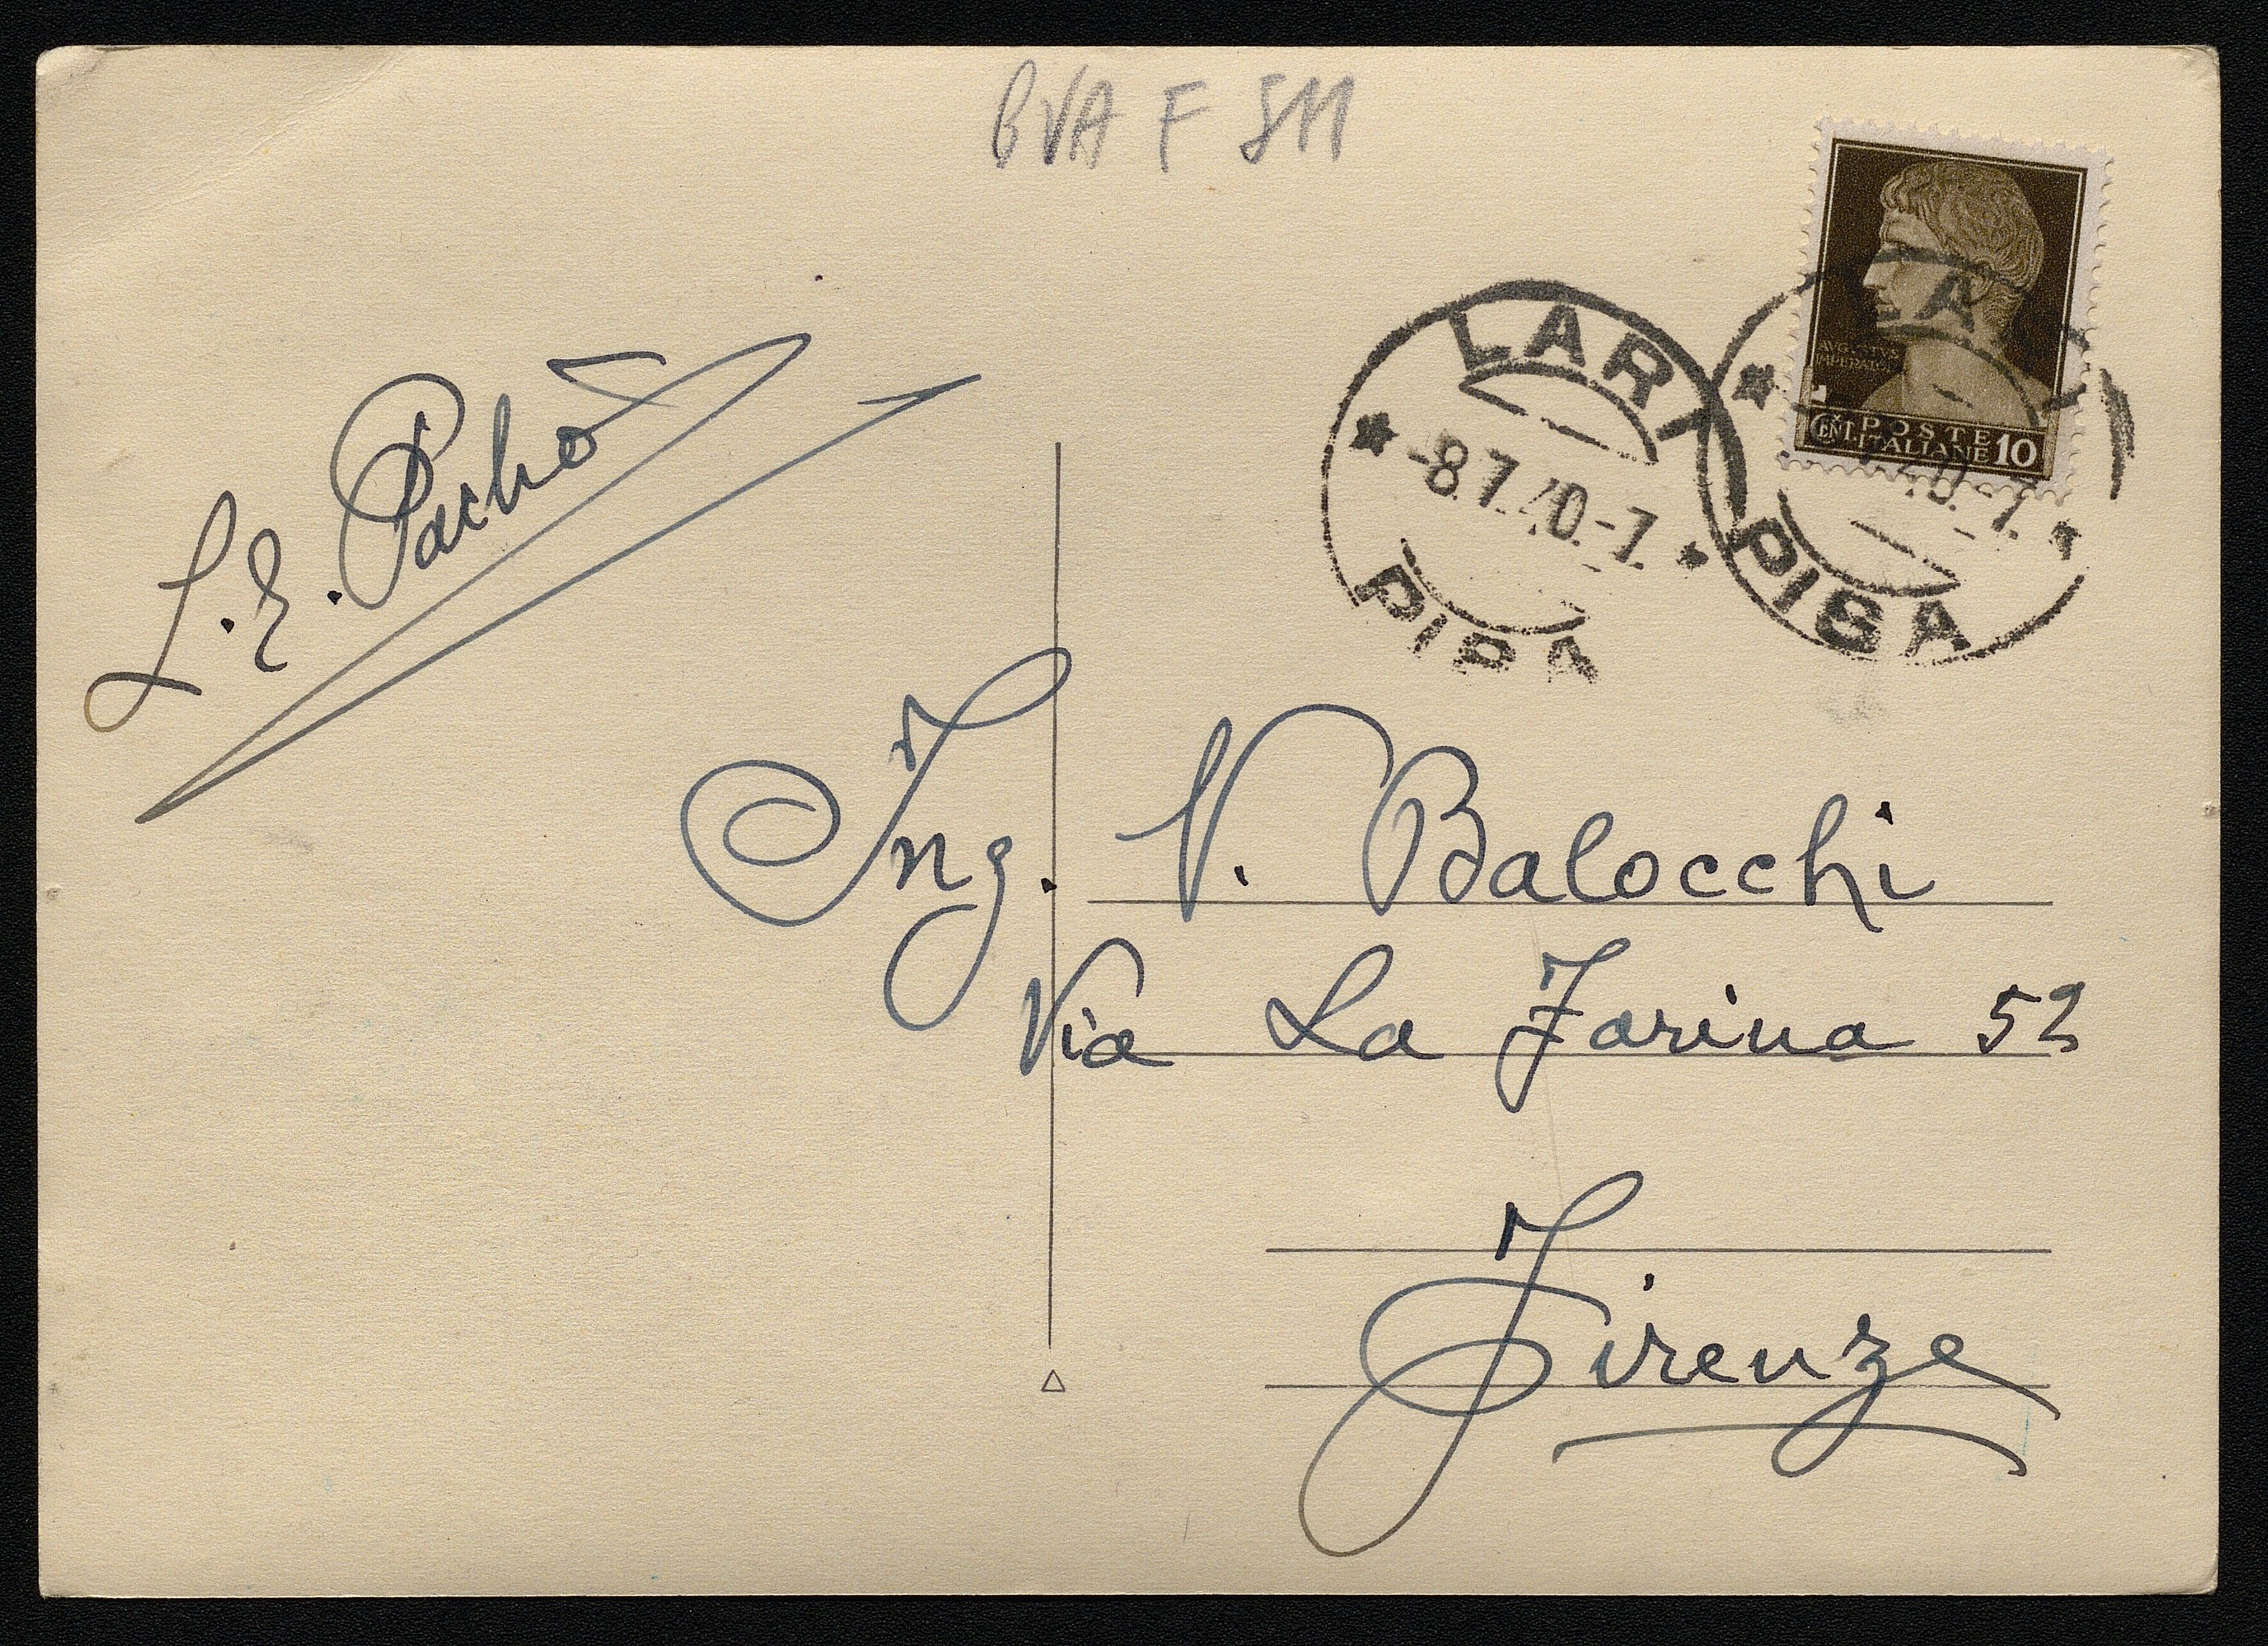 BVA F 511
AVGVSTVS
IMPERATOR
CENT. POSTE
ITALIANE 10
LARI
-8.7.40.-7.
PISA
LARI
40.-7.
PISA
Ing. V. Balocchi
Via La Farina 52
Firenze